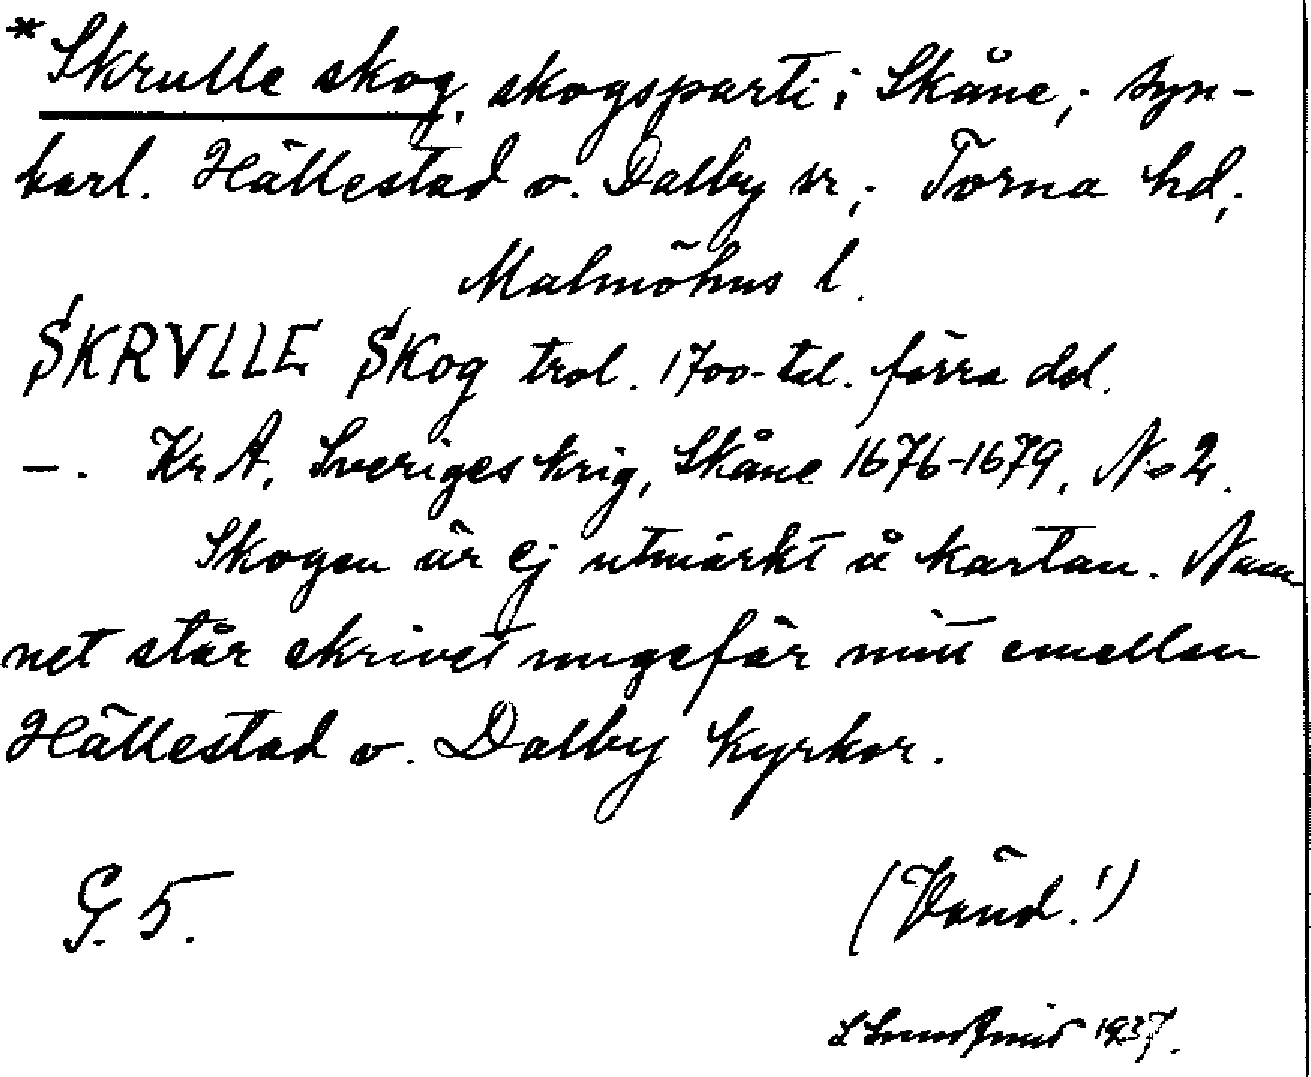 *Skrulle skog, skogsparti i Skåne; syn-
barl. Hällestad o. Dalby sr; Torna hd;
Malmöhus l.
SKRVLLE Skog trol. 1700-tal. förra del.
—. Kr A, Sveriges krig, Skåne 1676-1679, No 2.
Skogen är ej utmärkt å kartan. Nam-
net står skrivet ungefär mitt emellan
Hällestad o. Dalby kyrkor.
G. 5.
(Vänd!)
1937.